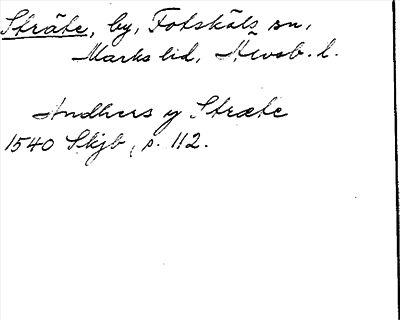 Stråte, by, Fotskäls sn,
Marks hd, Älvsb. l.
Andhers y Stræte
1540 Skjb, s. 112.